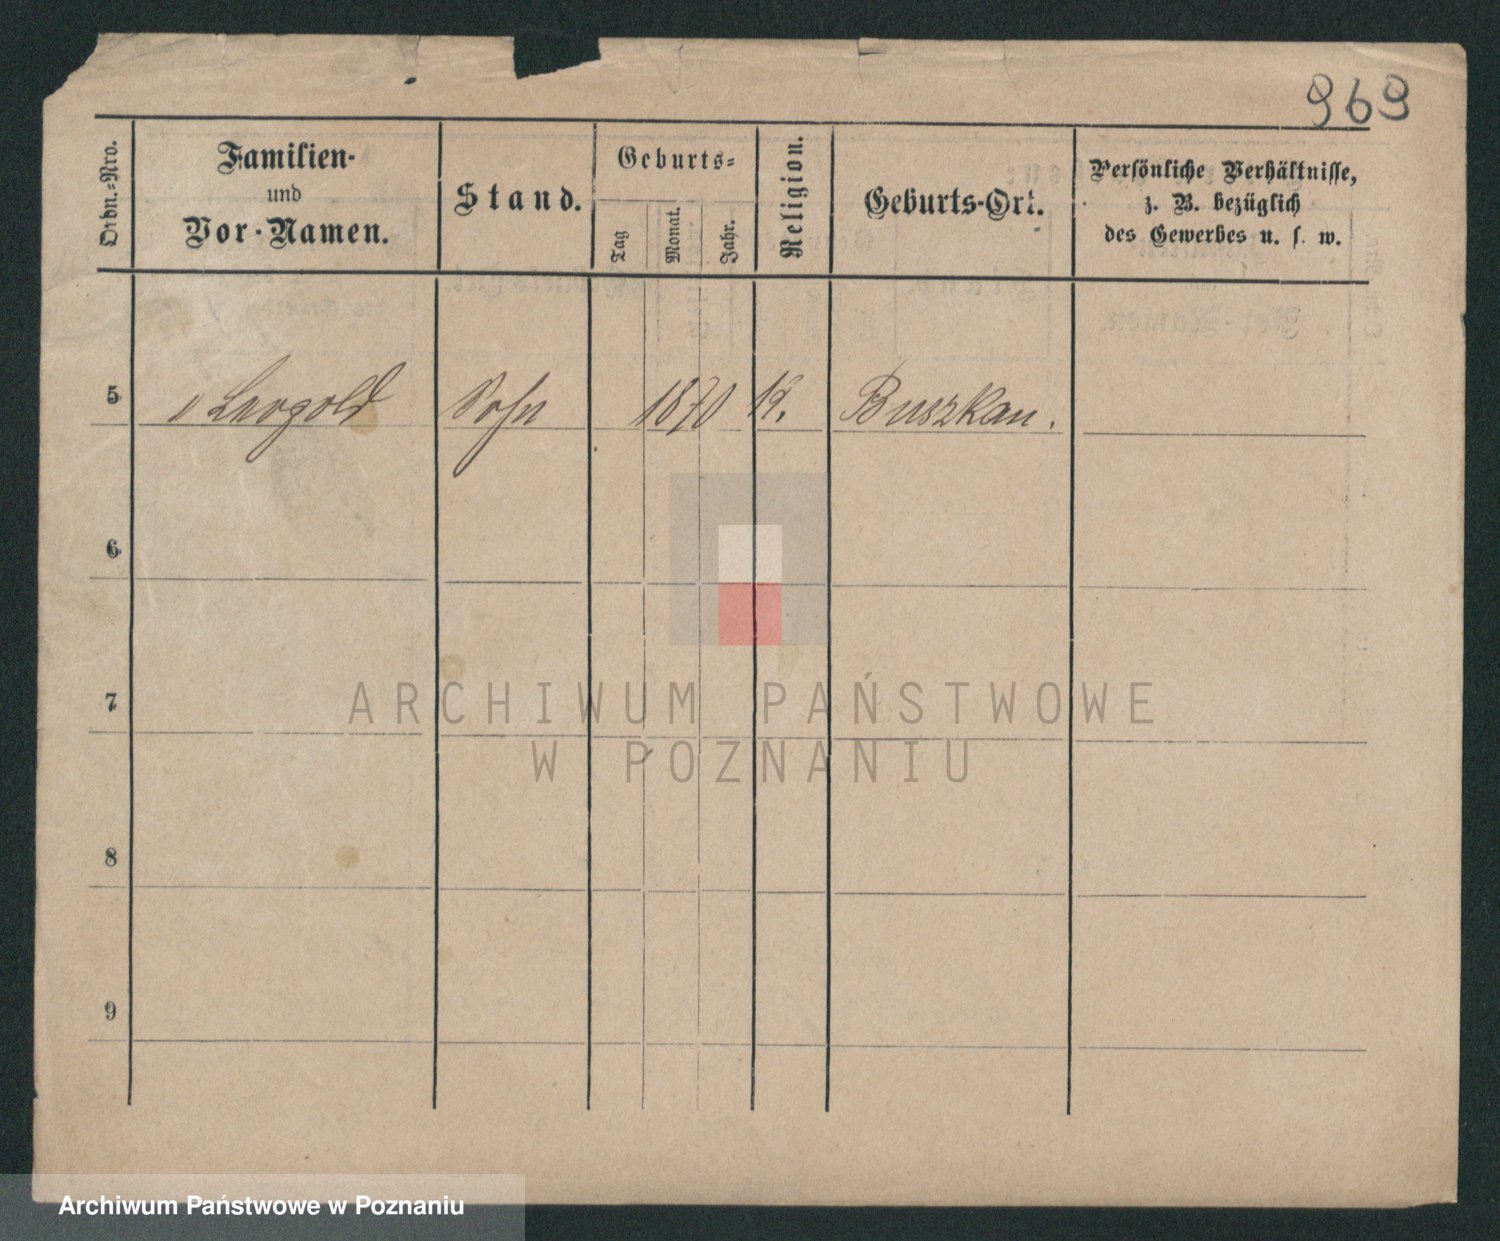 969
Ordn.-Nro.
Familien-
und
Vor-Namen.
Stand.
Geburts-
Tag
Monat.
Jahr.
Religion.
Geburts-Ort.
Persönliche Verhältnisse,
z. B. bezüglich
des Gewerbes u. s. w.
5 " Leopold Sohn 1870 Buszkau.
6
7
8
9
ARCHIWUM PAŃSTWOWE
W POZNANIU
Archiwum Państwowe w Poznaniu